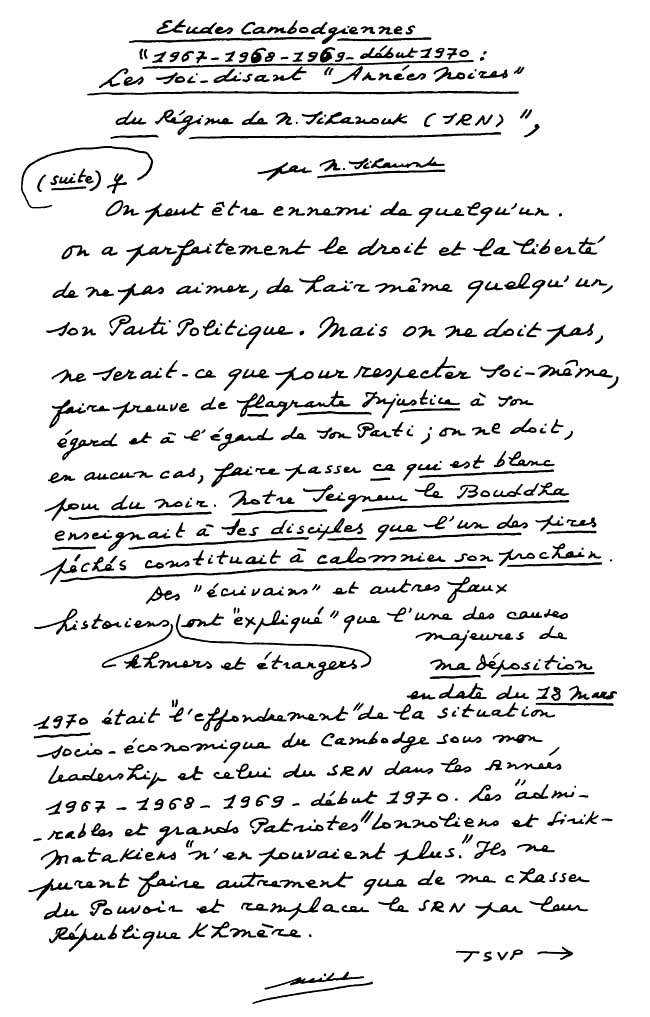 Etudes Cambodgiennes
"1967-1968-1969-début 1970 :
Les soi-disant "Années Noires"
du Régime de N. Sihanouk (SRN)",
par N. Sihanouk
(suite) 4
On peut être ennemi de quelqu'un.
On a parfaitement le droit et la liberté
de ne pas aimer, de haïr même quelqu'un,
son Parti Politique. Mais on ne doit pas,
ne serait-ce que pour respecter soi-même,
faire preuve de flagrante Injustice à son
égard et à l'égard de son Parti ; on ne doit,
en aucun cas, faire passer ce qui est blanc
pour du noir. Notre Seigneur le Bouddha
enseignait à ses disciples que l'un des pires
péchés constituait à calomnier son prochain.
Des "écrivains" et autres faux
historiens, ont "expliqué" que l'une des causes
majeures de
khmers et étrangers
ma déposition
en date du 18 Mars
1970 était "l'effondrement" de la situation
socio-économique du Cambodge sous mon
leadership et celui du SRN dans les Années
1967 - 1968 - 1969 - début 1970. Les "admi-
-rables et grands Patriotes" lonnoliens et Sirik-
Matakiens "n'en pouvaient plus." Ils ne
purent faire autrement que de me chasser
du Pouvoir et remplacer le SRN par leur
République Khmère.
TSVP →